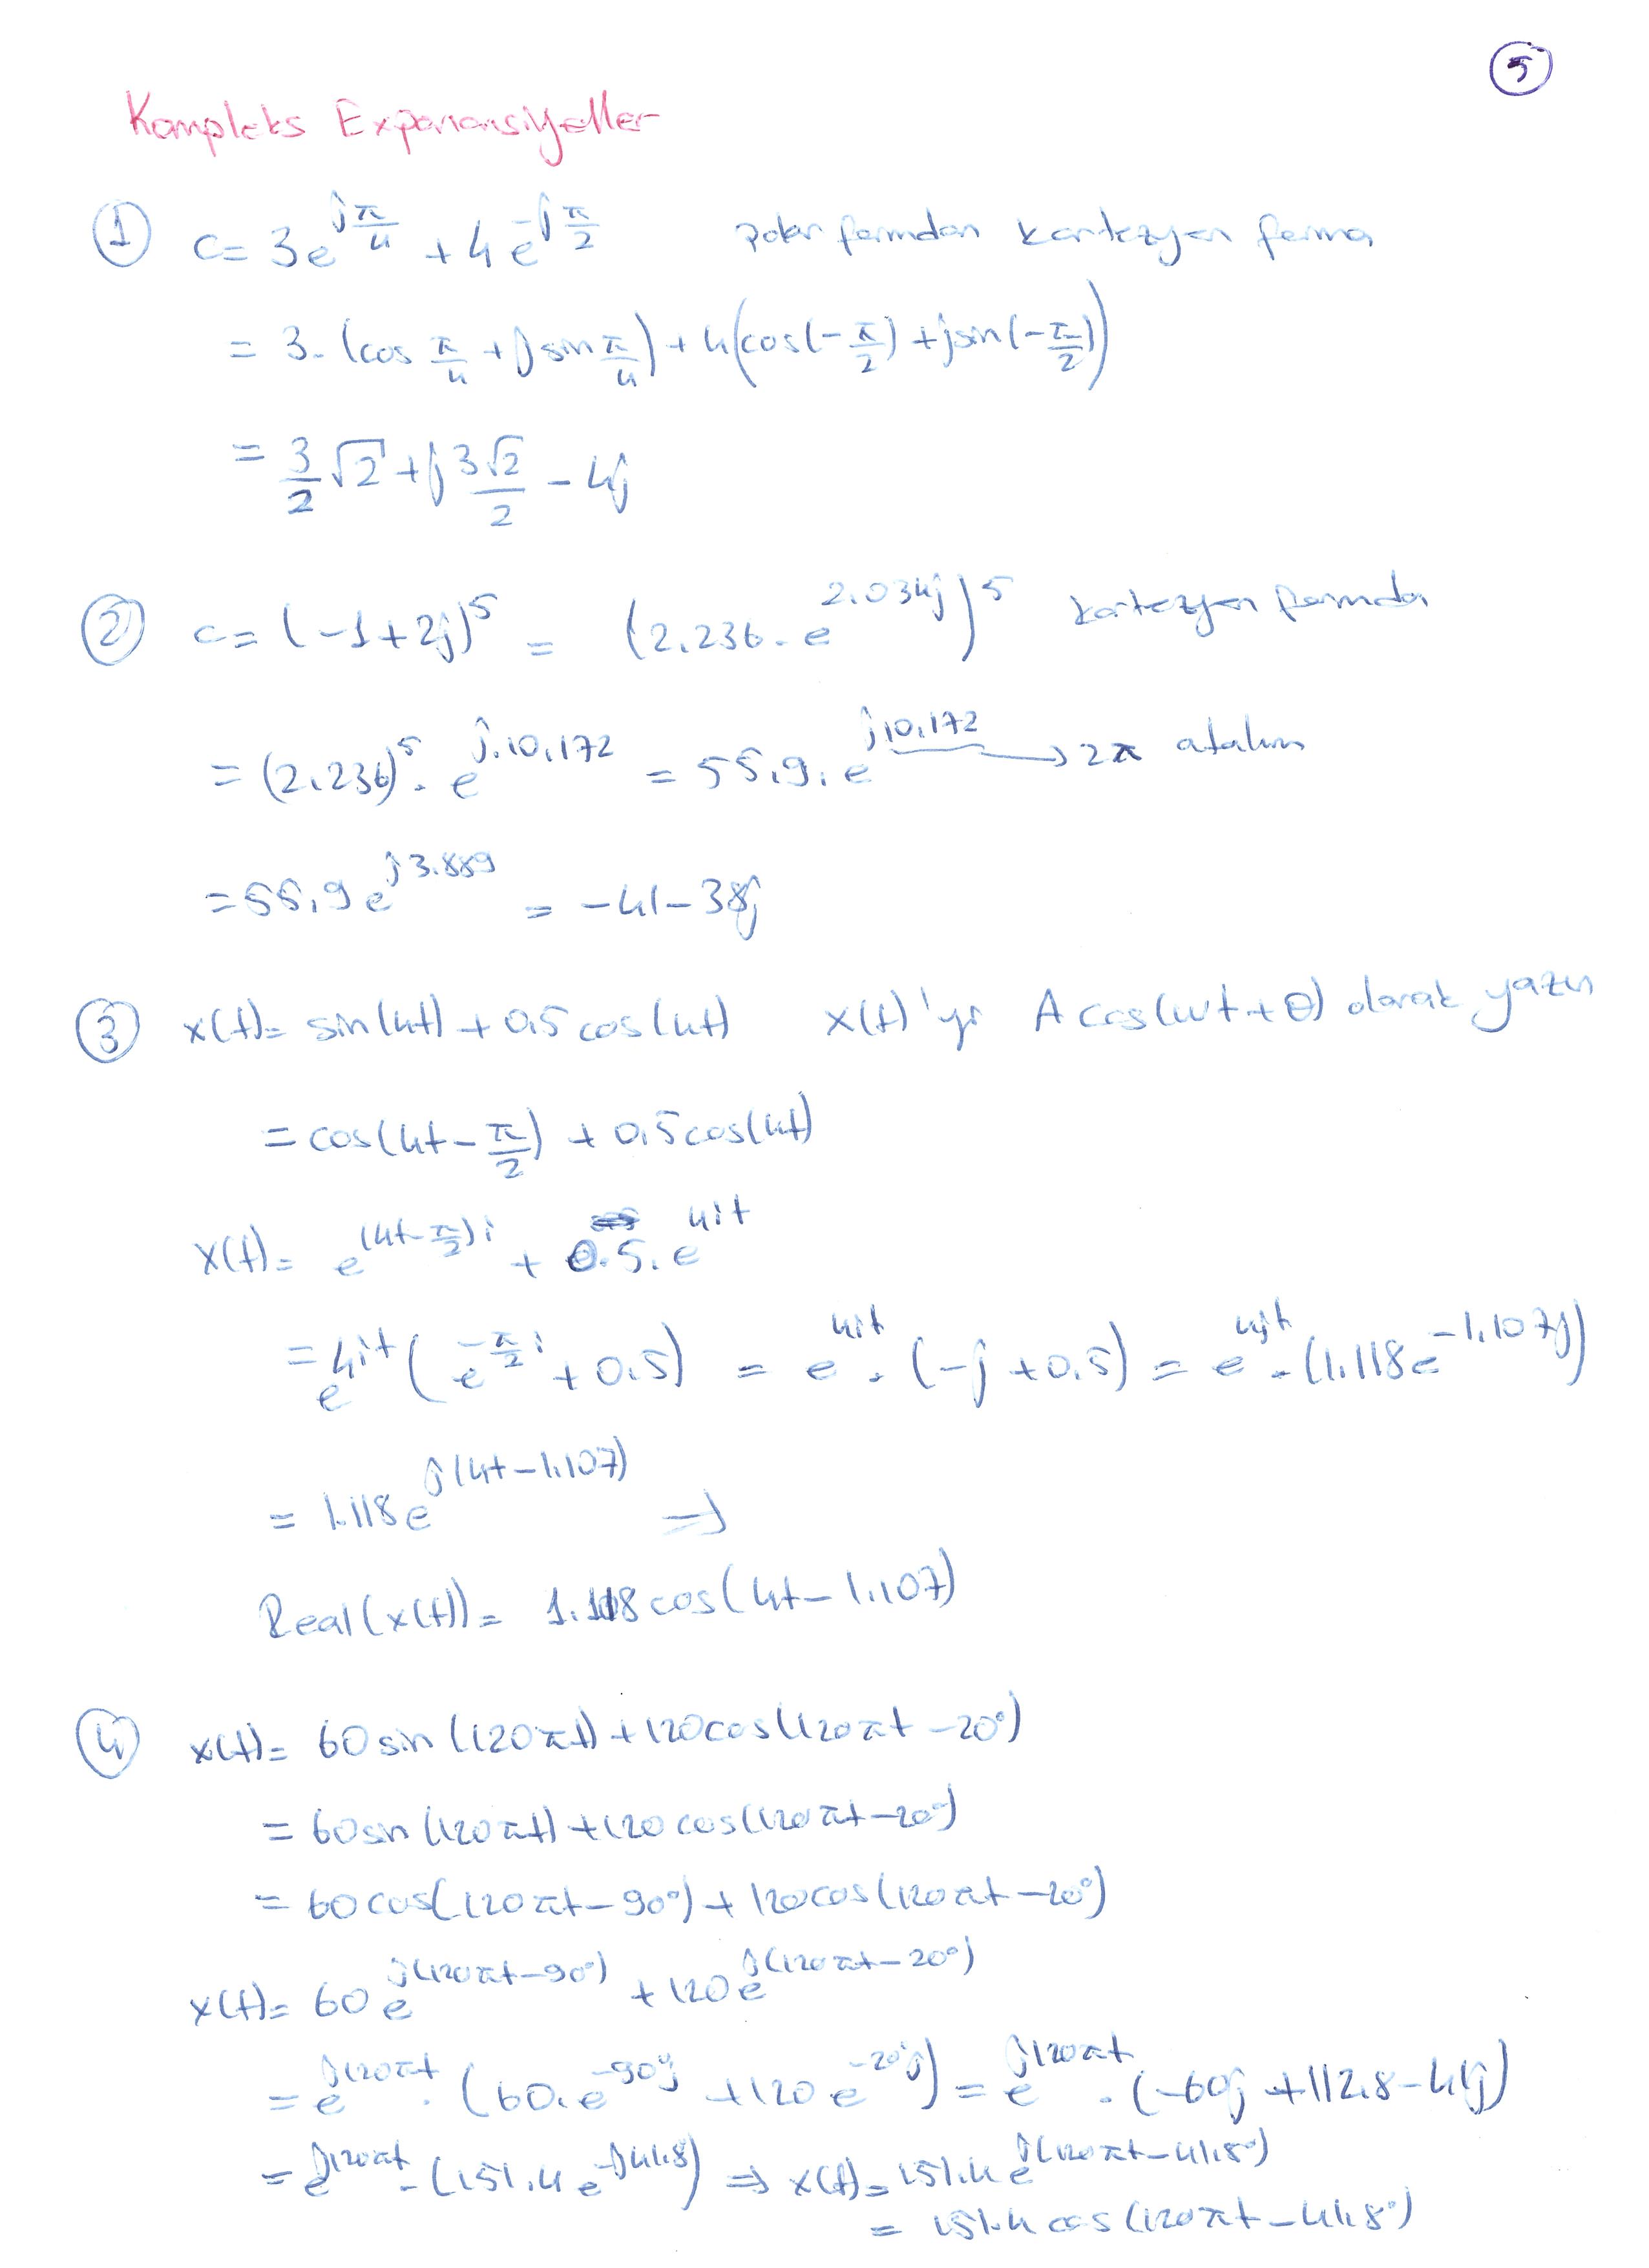 5
Kompleks Exponansiyeller
1 c= 3e^{jπ/4} + 4e^{-jπ/2} polar formdan kartezyen forma
= 3.(cos π/4 + j sin π/4) + 4(cos(-π/2) + j sin(-π/2))
= 3/2 √2 + j 3√2/2 - 4j
2 c= (-1+2j)^5 = (2.236.e^{2.034j})^5 kartezyen formda
= (2.236)^5 . e^{j.10.172} = 55.9.e^{j10.172} → 2π atalım
= 55.9e^{j3.889} = -41-38j
3 x(t)= sin(4t) + 0.5cos(4t) x(t)'yi A cos(wt+θ) olarak yazın
= cos(4t-π/2) + 0.5cos(4t)
x(t)= e^{(4t-π/2)i} + 0.5.e^{4it}
= e^{4it}(e^{-π/2 i} + 0.5) = e^{4it}.(-j+0.5) = e^{4jt}.(1.118e^{-1.107j})
= 1.118e^{j(4t-1.107)} ⇒
Real(x(t))= 1.118cos(4t-1.107)
4 x(t)= 60sin(120πt) + 120cos(120πt-20°)
= 60sin(120πt) + 120cos(120πt-20°)
= 60cos(120πt-90°) + 120cos(120πt-20°)
x(t)= 60e^{j(120πt-90°)} + 120e^{j(120πt-20°)}
= e^{j120πt}.(60.e^{-90°j} + 120e^{-20°j}) = e^{j120πt}.(-60j+112.8-41j)
= e^{j120πt}.(151.4e^{-j41.8}) ⇒ x(t)= 151.4e^{j(120πt-41.8°)}
= 151.4cos(120πt-41.8°)